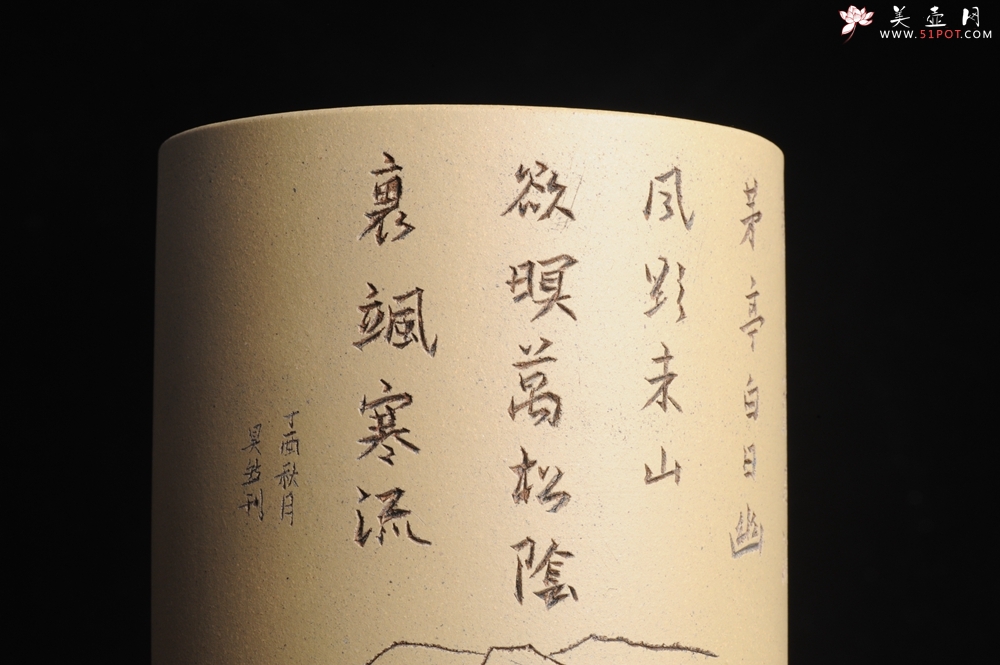 茅亭白日幽
风影未山
欲暝萬松陰
裏颯寒流
丁酉秋月
吴刊
美壶网
WWW.51POT.COM